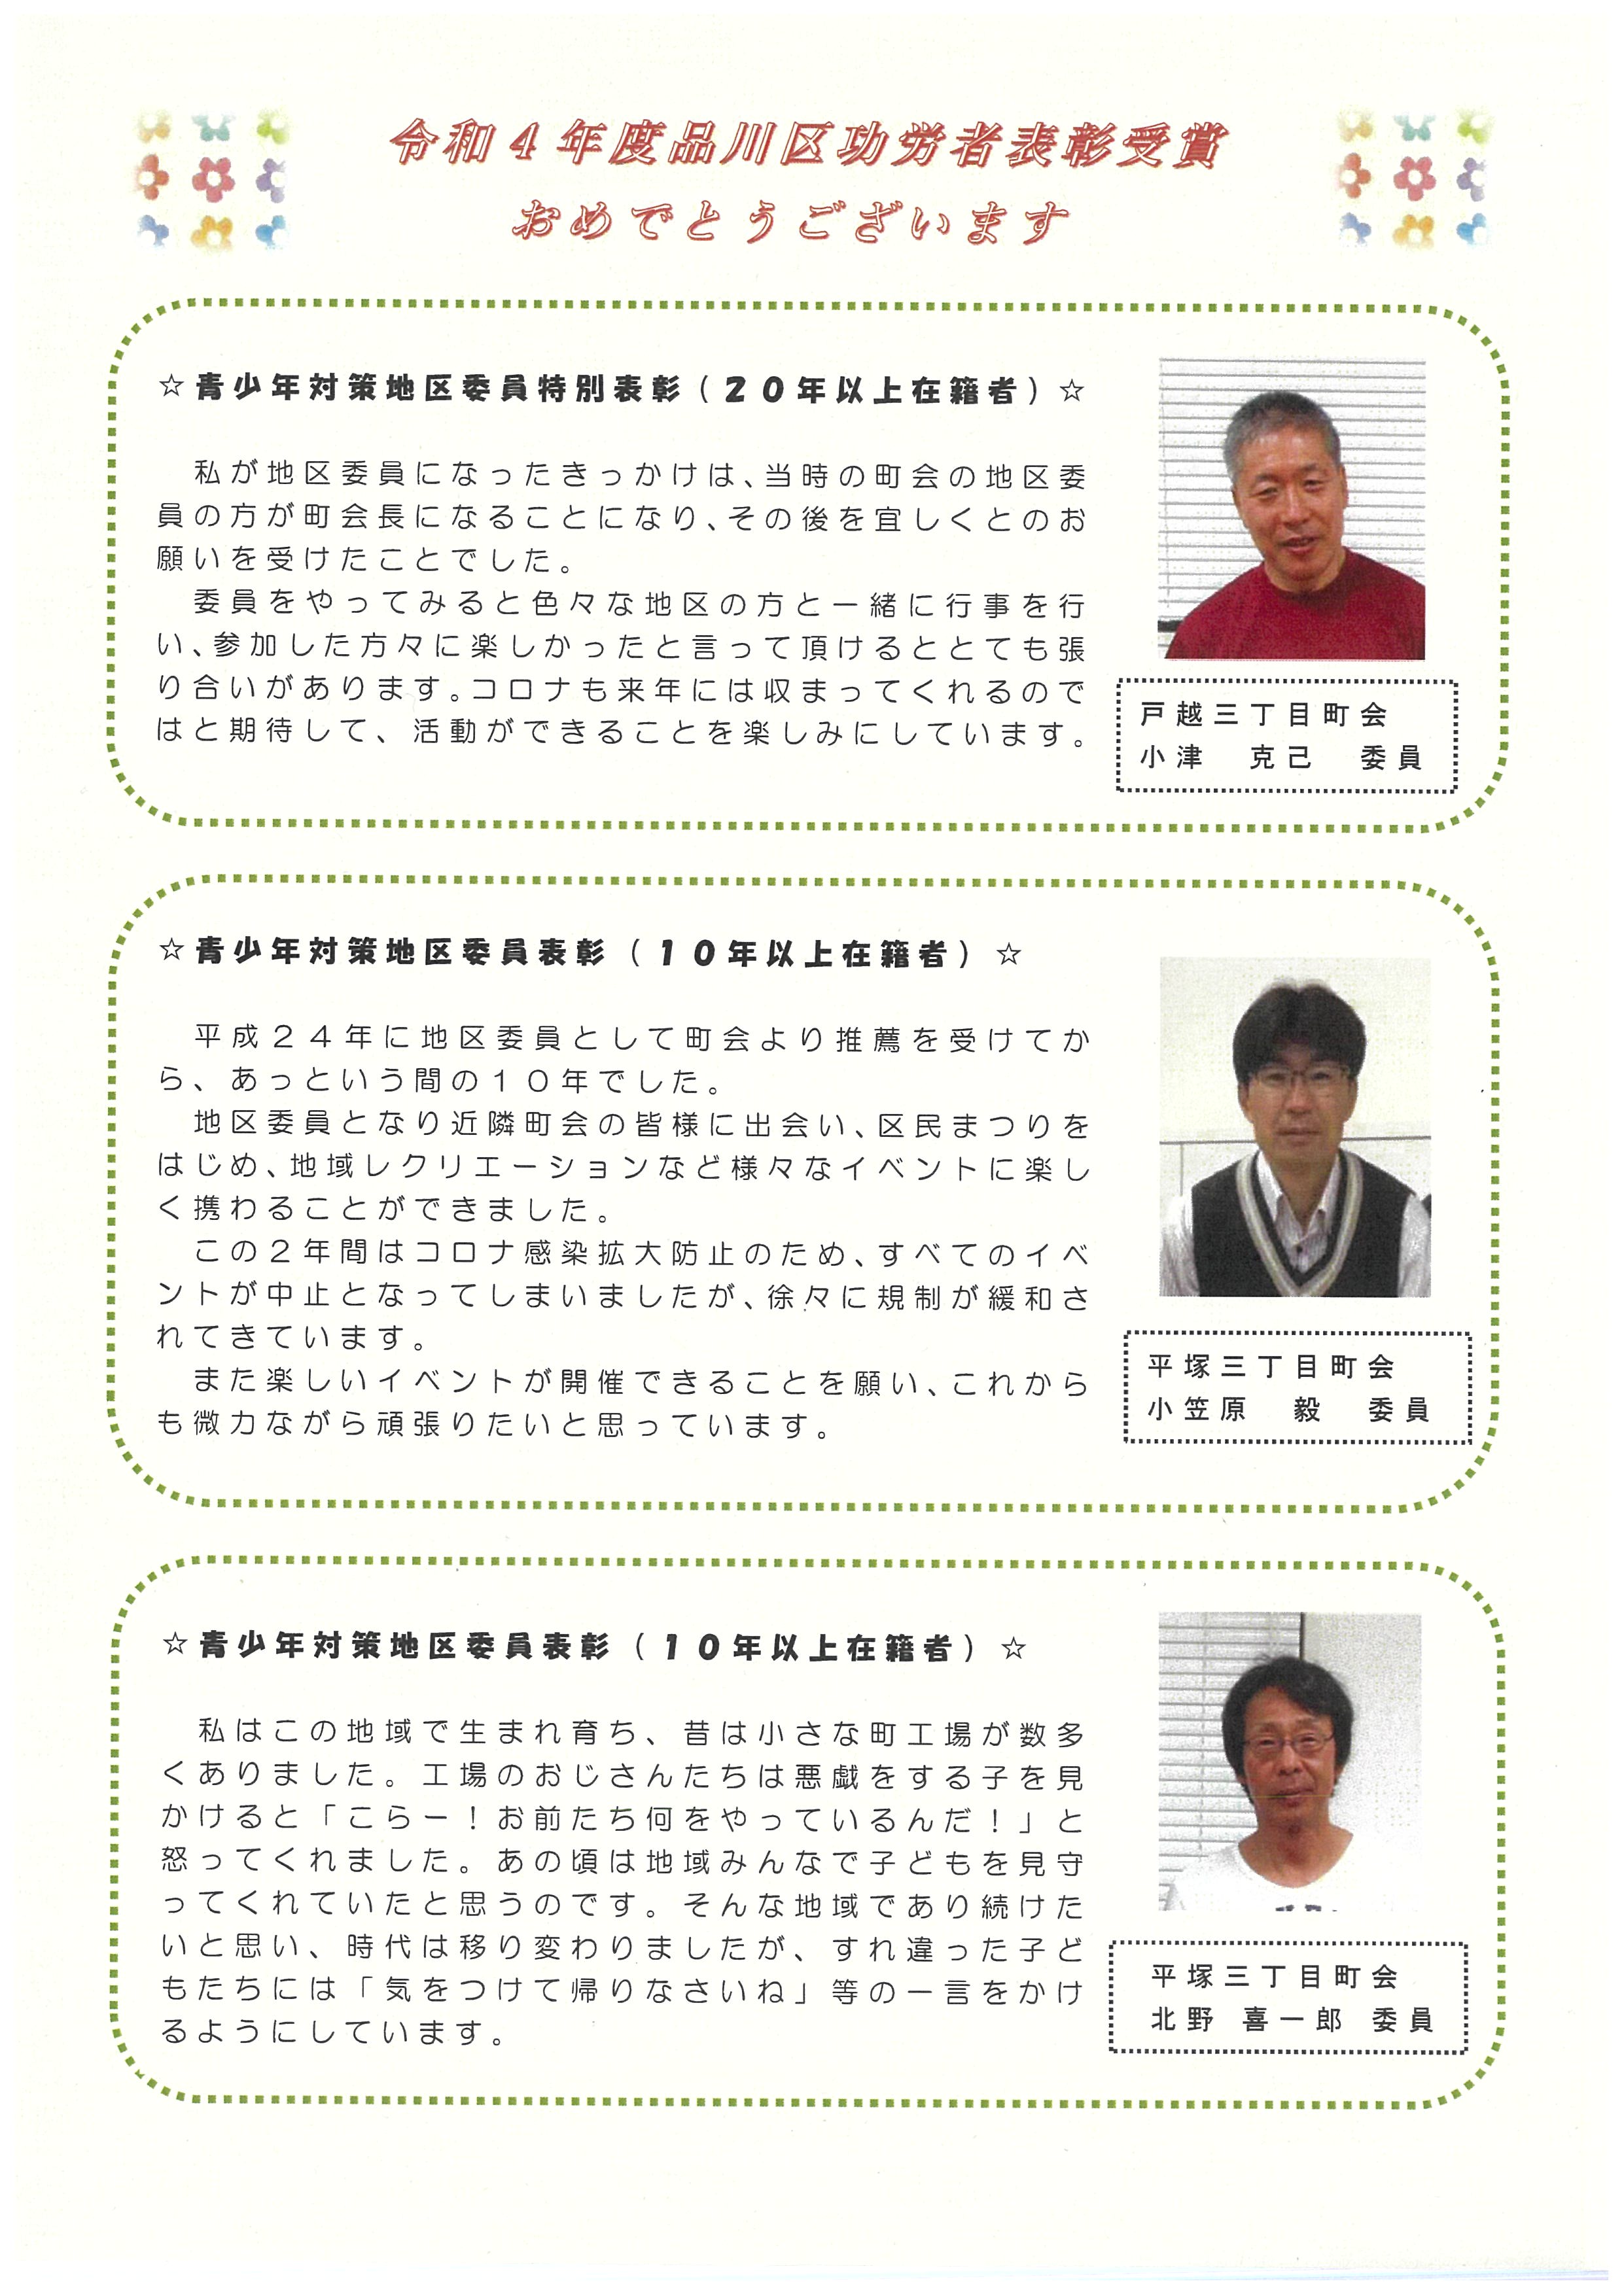 令和４年度品川区功労者表彰受賞
おめでとうございます
☆青少年対策地区委員特別表彰（２０年以上在籍者）☆
私が地区委員になったきっかけは、当時の町会の地区委
員の方が町会長になることになり、その後を宜しくとのお
願いを受けたことでした。
委員をやってみると色々な地区の方と一緒に行事を行
い、参加した方々に楽しかったと言って頂けるととても張
り合いがあります。コロナも来年には収まってくれるので
はと期待して、活動ができることを楽しみにしています。
戸越三丁目町会
小津　克己　委員
☆青少年対策地区委員表彰（１０年以上在籍者）☆
平成２４年に地区委員として町会より推薦を受けてか
ら、あっという間の１０年でした。
地区委員となり近隣町会の皆様に出会い、区民まつりを
はじめ、地域レクリエーションなど様々なイベントに楽し
く携わることができました。
この２年間はコロナ感染拡大防止のため、すべてのイベ
ントが中止となってしまいましたが、徐々に規制が緩和さ
れてきています。
また楽しいイベントが開催できることを願い、これから
も微力ながら頑張りたいと思っています。
平塚三丁目町会
小笠原　毅　委員
☆青少年対策地区委員表彰（１０年以上在籍者）☆
私はこの地域で生まれ育ち、昔は小さな町工場が数多
くありました。工場のおじさんたちは悪戯をする子を見
かけると「こらー！お前たち何をやっているんだ！」と
怒ってくれました。あの頃は地域みんなで子どもを見守
ってくれていたと思うのです。そんな地域であり続けた
いと思い、時代は移り変わりましたが、すれ違った子ど
もたちには「気をつけて帰りなさいね」等の一言をかけ
るようにしています。
平塚三丁目町会
北野　喜一郎　委員